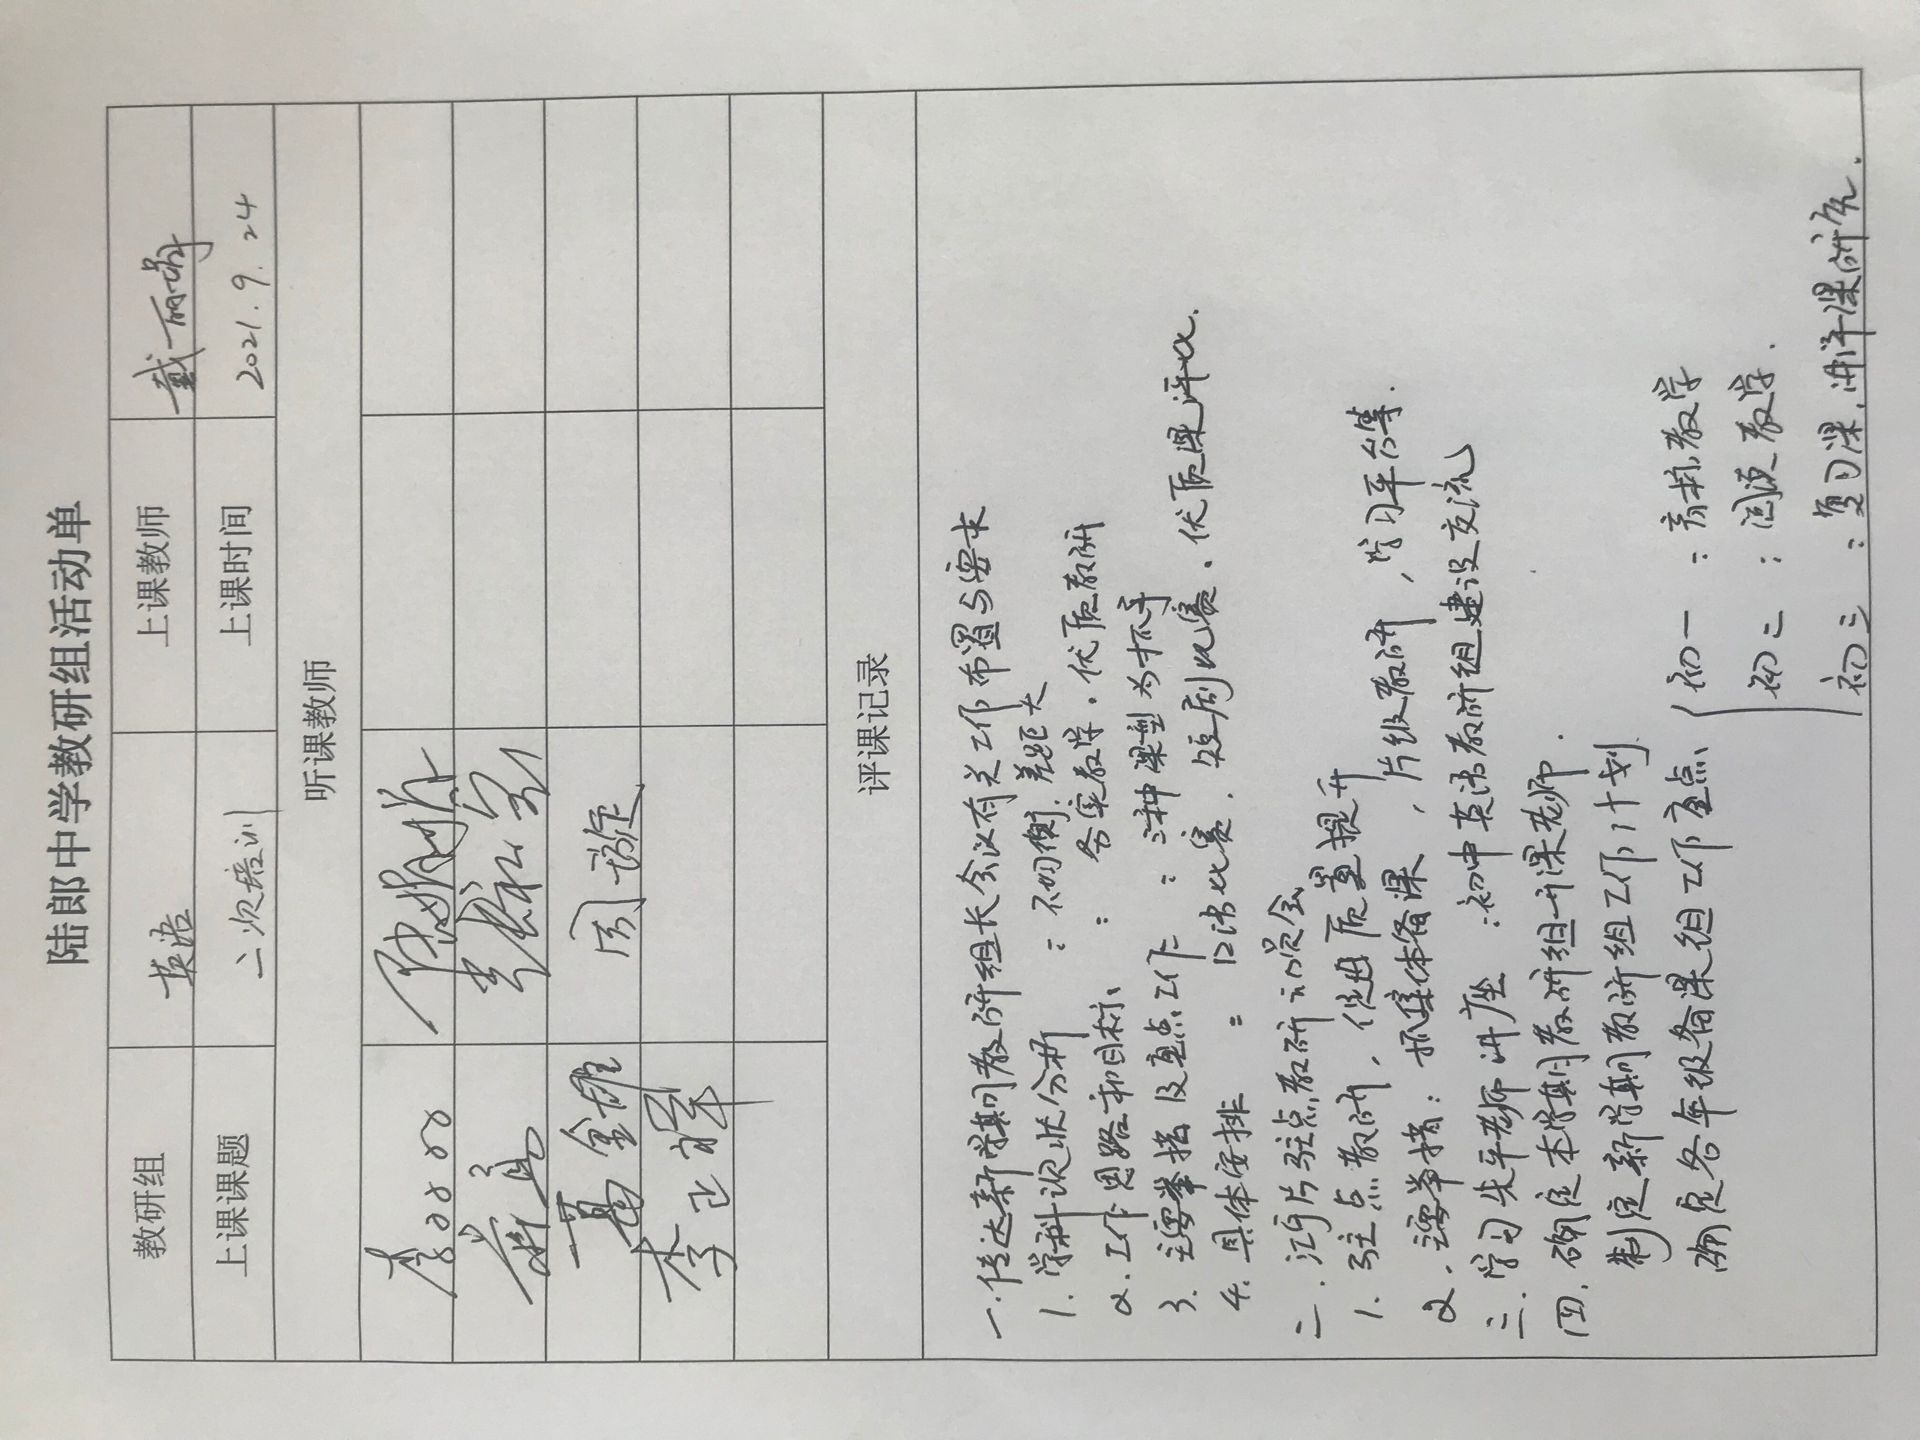 陆郎中学教研组活动单
教研组 英语 上课教师
上课课题 二次培训 上课时间 2021.9.24
听课教师
葛金雄 周璇
李正翠
评课记录
一.传达新学期教研组长会议有关工作布置与要求
1.学科现状分析:不均衡.差距大
2.工作思路和目标:务实教学.优质教研
3.主要举措及重点工作:三种课型为抓手
4.具体安排:口语比赛.短剧比赛.优质课评比.
二.江宁片驻点教研动员会
1.驻点教研,促进质量提升
2.主要举措:抓集体备课,片级教研,学习平台等.
三.学习先平老师讲座:初中英语教研组建设交流
四.确定本学期教研组开课老师.
制定新学期教研组工作计划
确定各年级备课组工作重点
初一:音标教学
初二:阅读教学.
初三:复习课.讲评课研究.